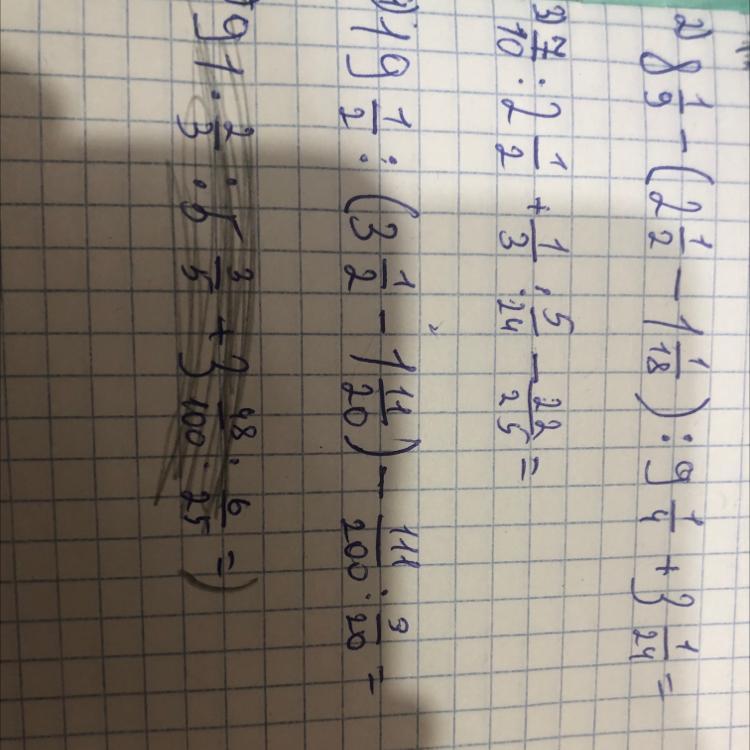 2) 8 1/9 - (2 1/2 - 1 1/18) : 9 1/4 + 3 1/24 =
3) 7/10 : 2 1/2 + 1/3 : 5/24 - 22/25 =
) 19 1/2 : (3 1/2 - 1 11/20) - 111/200 : 9/20 =
) 91 : 2/3 : 5 3/5 + 3 48/100 : 6/25 =)